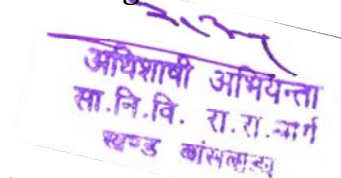 अधिशाषी अभियन्ता
सा.नि.वि. रा.रा.मार्ग
खण्ड बांसवाड़ा